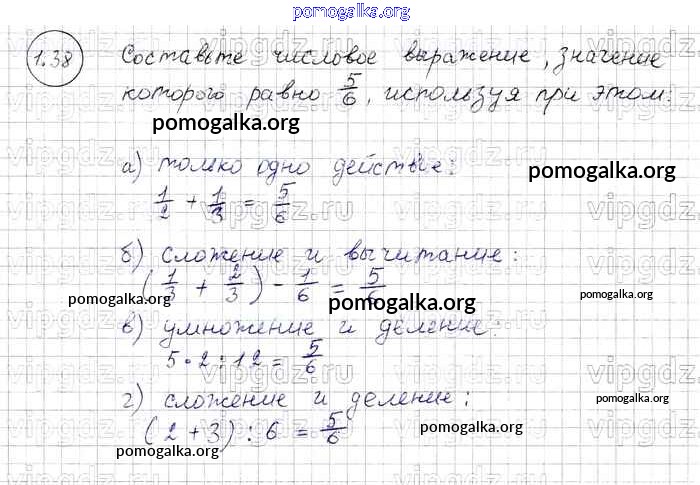 pomogalka.org
1.38 Составьте числовое выражение, значение
которого равно 5/6, используя при этом:
pomogalka.org
а) только одно действие:
pomogalka.org
1/2 + 1/3 = 5/6
б) сложение и вычитание:
(1/3 + 2/3) - 1/6 = 5/6
pomogalka.org
pomogalka.org
pomogalka.org
в) умножение и деление:
5 · 2 : 12 = 5/6
г) сложение и деление:
pomogalka.org
(2 + 3) : 6 = 5/6
pomogalka.org
pomogalka.org